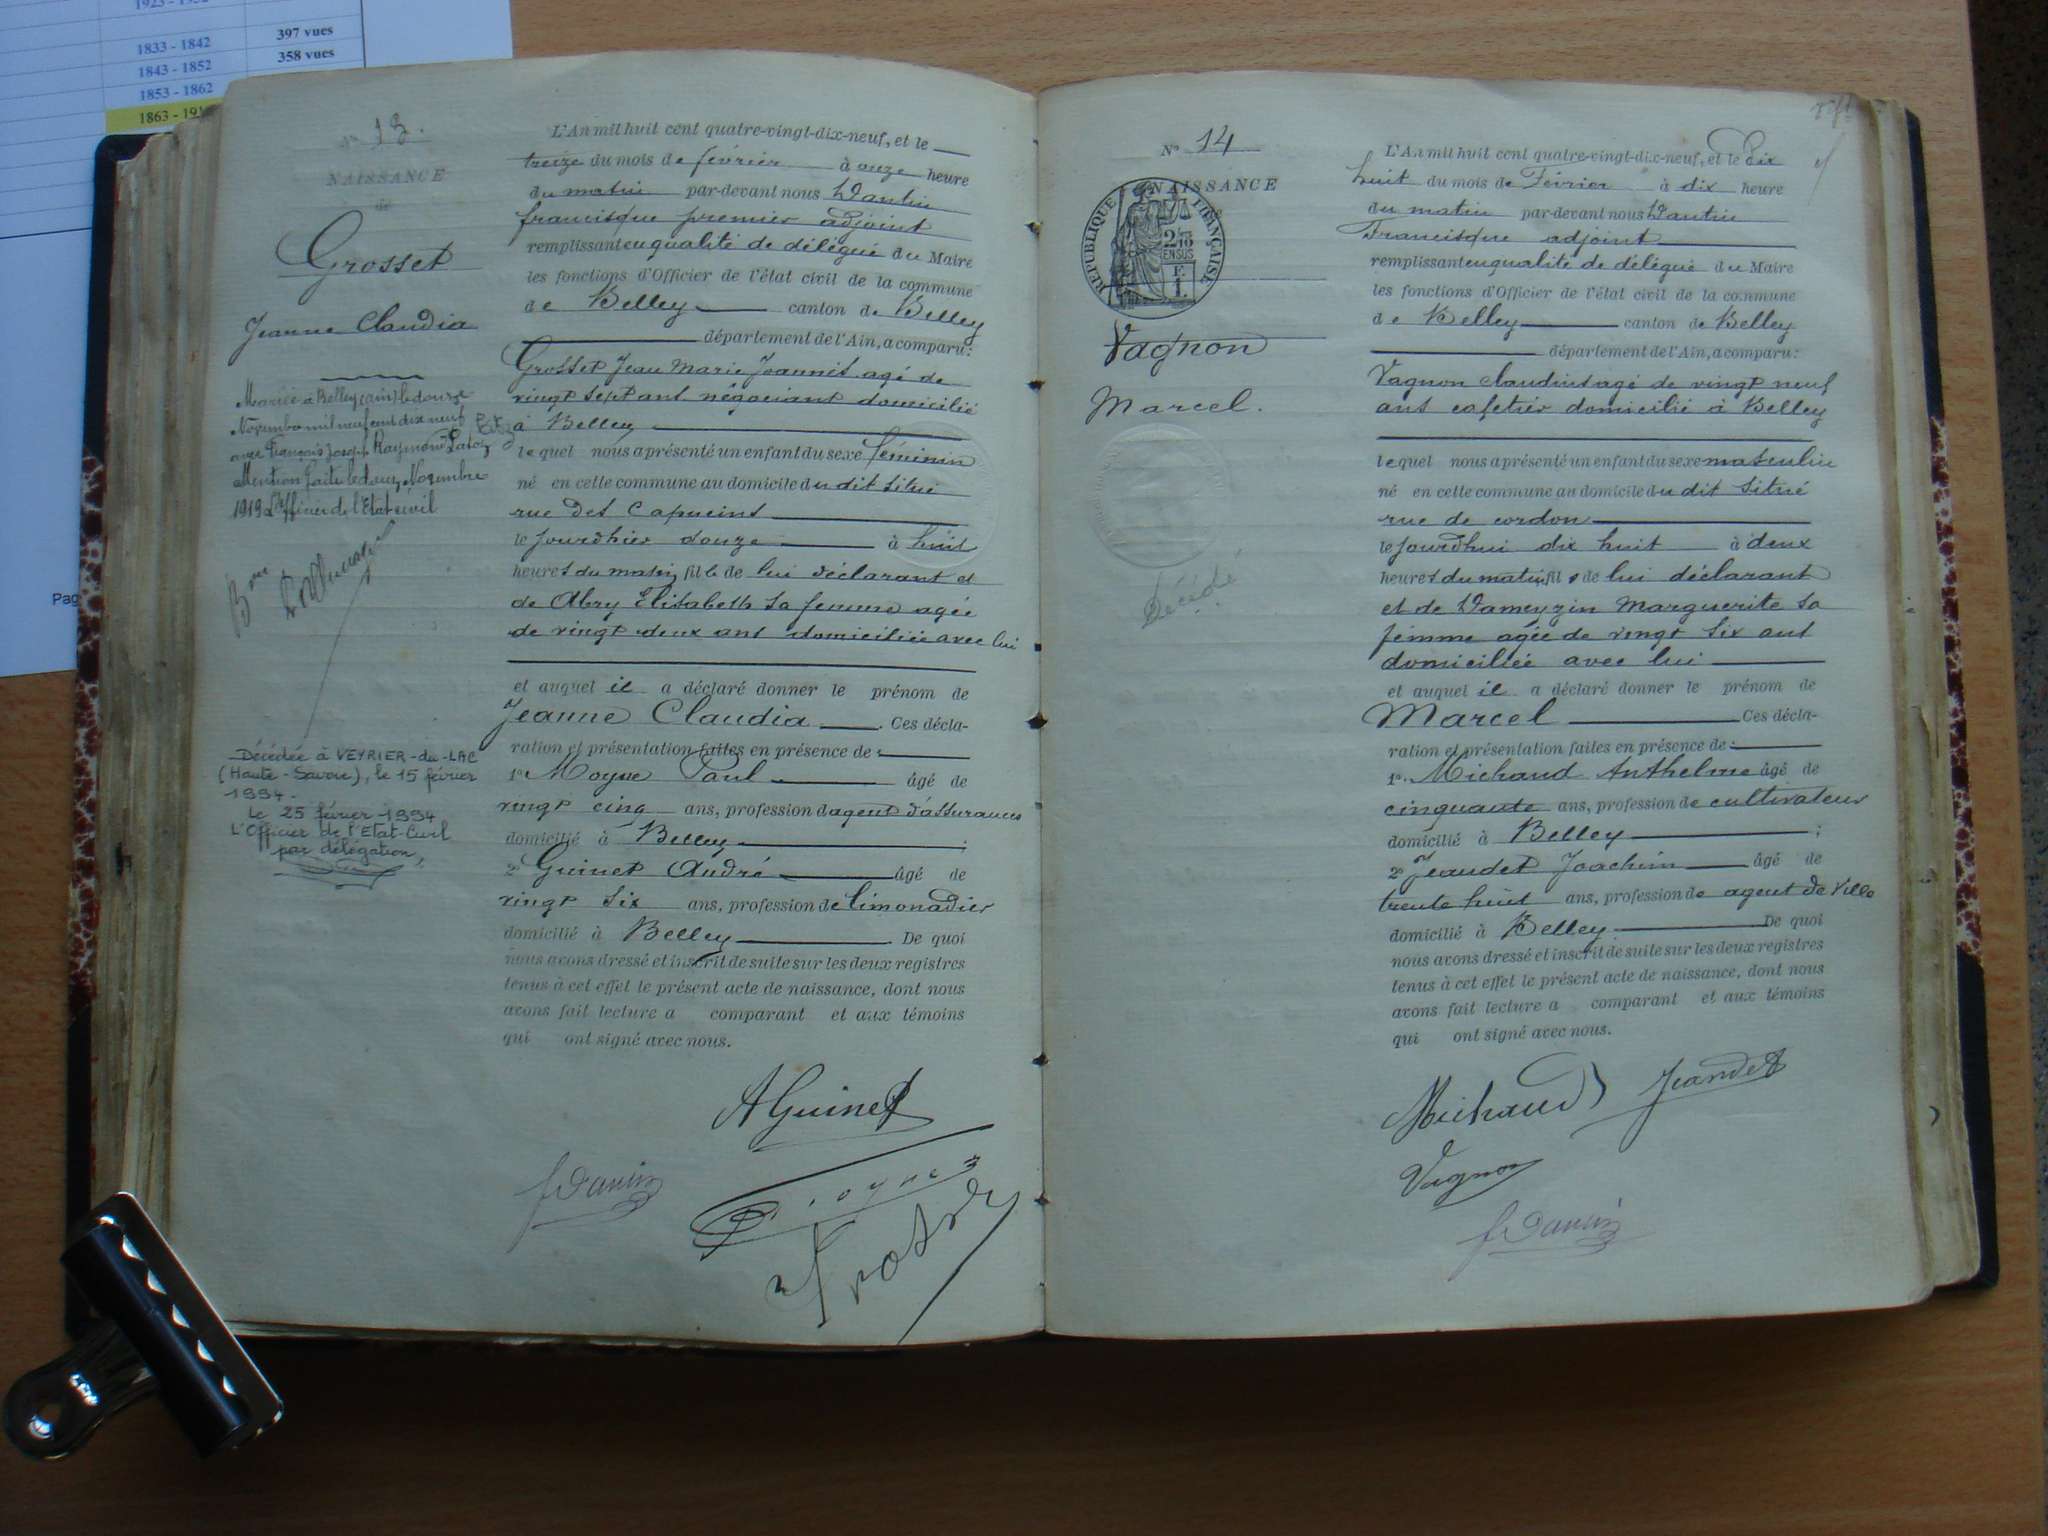 1833 - 1842 397 vues
1843 - 1852 358 vues
1853 - 1862
1863 - 19
Pag
N° 13.
NAISSANCE
de
Grosset
Jeanne Claudia
Mariée à Belley (ain) le douze
Novembre mil neuf cent dix neuf
avec François Joseph Raymond
Mention faite le douze Novembre
1919 L'officier de l'Etat civil
Décédée à VEYRIER-du-LAC
(Haute-Savoie), le 15 février
1994.
Le 25 février 1994
L'Officier de l'Etat-Civil
par délégation,
L'An mil huit cent quatre-vingt-dix-neuf, et le
treize du mois de février à onze heure
du matin par-devant nous Dantin
francisque premier adjoint
remplissant en qualité de délégué du Maire
les fonctions d'Officier de l'état civil de la commune
de Belley canton de Belley
département de l'Ain, a comparu :
Grosset Jean Marie Joannès agé de
vingt sept ans négociant domicilié
à Belley
lequel nous a présenté un enfant du sexe féminin
né en cette commune au domicile du dit situé
rue des Capucins
le jourdhier douze à huit
heures du matin, fille de lui déclarant et
de Abry Elisabeth sa femme agée
de vingt deux ans domiciliée avec lui
et auquel il a déclaré donner le prénom de
Jeanne Claudia . Ces décla-
ration et présentation faites en présence de :
1° Moyne Paul âgé de
vingt cinq ans, profession d'agent d'assurances
domicilié à Belley ;
2° Guinet André âgé de
vingt six ans, profession de limonadier
domicilié à Belley . De quoi
nous avons dressé et inscrit de suite sur les deux registres
tenus à cet effet le présent acte de naissance, dont nous
avons fait lecture a comparant et aux témoins
qui ont signé avec nous.
A Guinet
f Dantin
P Moyne
Grosset
N° 14
NAISSANCE
REPUBLIQUE FRANÇAISE
2/10 EN SUS
F. 1.
Vagnon
Marcel.
Décédé
L'An mil huit cent quatre-vingt-dix-neuf, et le Dix
huit du mois de Février à dix heure
du matin par-devant nous Dantin
Francisque adjoint
remplissant en qualité de délégué du Maire
les fonctions d'Officier de l'état civil de la commune
de Belley canton de Belley
département de l'Ain, a comparu :
Vagnon Claudius agé de vingt neuf
ans cafetier domicilié à Belley
lequel nous a présenté un enfant du sexe masculin
né en cette commune au domicile du dit situé
rue de cordon
le jourdhui dix huit à deux
heures du matin, fils de lui déclarant
et de Dameyzin Marguerite sa
femme agée de vingt six ans
domiciliée avec lui
et auquel il a déclaré donner le prénom de
Marcel Ces décla-
ration et présentation faites en présence de :
1°. Michaud Anthelme âgé de
cinquante ans, profession de cultivateur
domicilié à Belley ;
2° Jeandet Joachim âgé de
trente huit ans, profession de agent de ville
domicilié à Belley De quoi
nous avons dressé et inscrit de suite sur les deux registres
tenus à cet effet le présent acte de naissance, dont nous
avons fait lecture a comparant et aux témoins
qui ont signé avec nous.
Michaud Jeandet
Vagnon
f Dantin